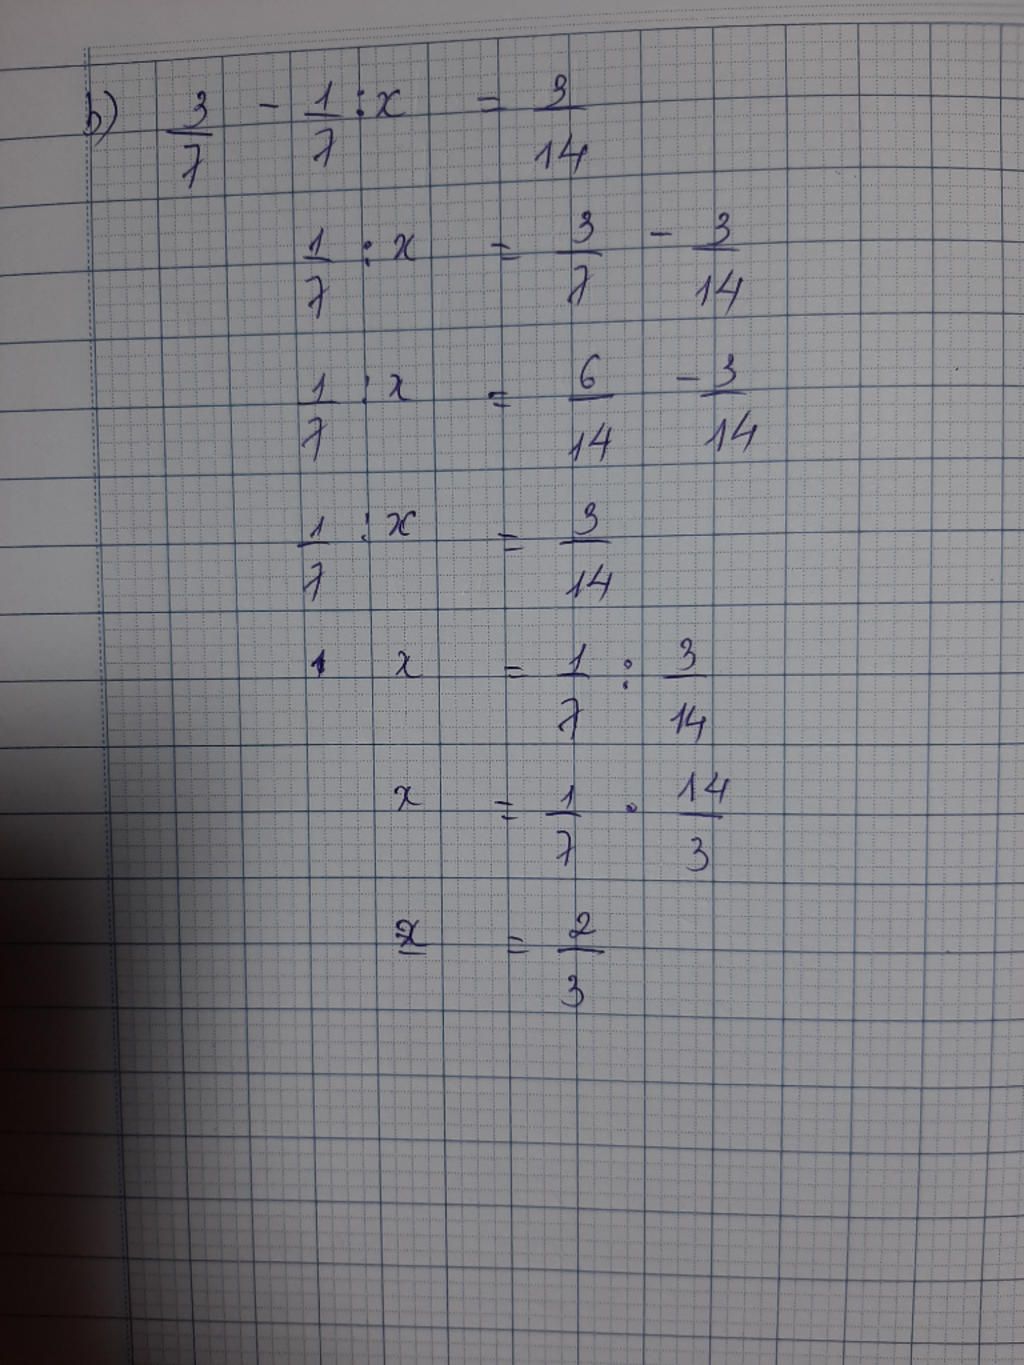 b) 3/7 - 1/7 : x = 3/14
1/7 : x = 3/7 - 3/14
1/7 : x = 6/14 - 3/14
1/7 : x = 3/14
x = 1/7 : 3/14
x = 1/7 . 14/3
x = 2/3